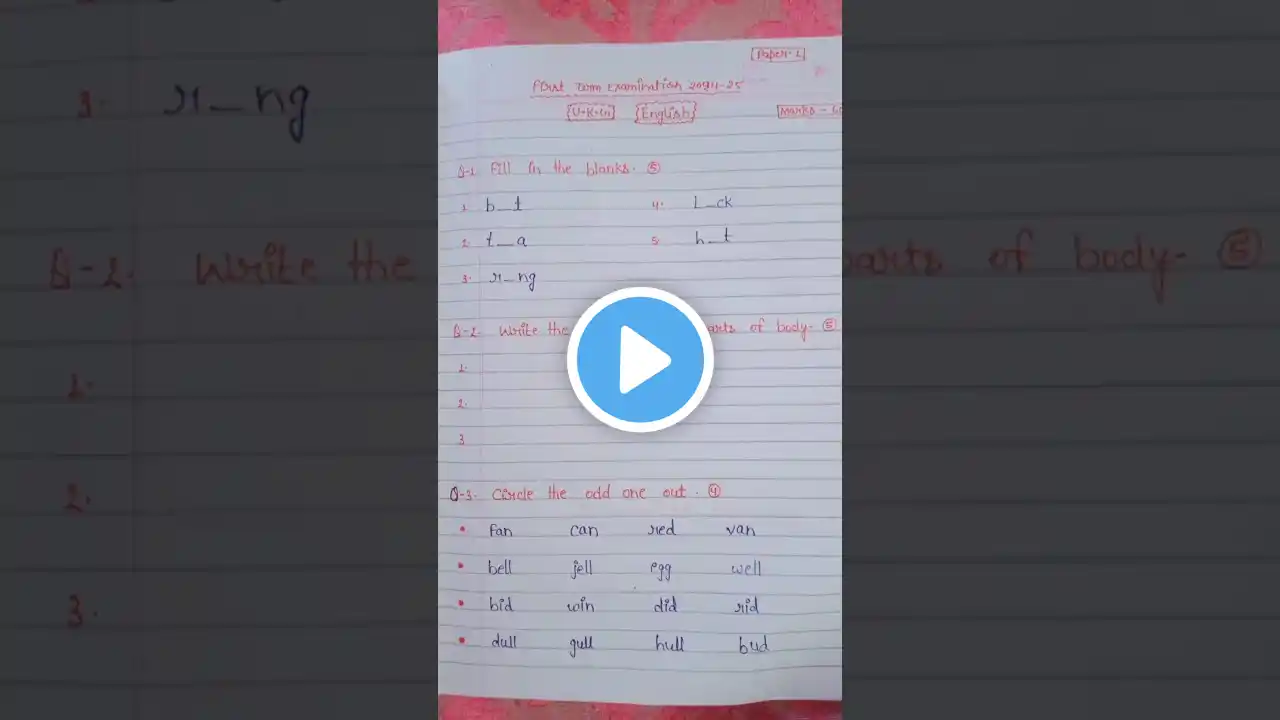 Paper-1
First Term Examination 2024-25
U.K.G English Marks - 60
Q-1 Fill in the blanks. 5
1. b_t 4. l_ck
2. t_a 5. h_t
3. r_ng
Q-2. Write the parts of body. 5
1.
2.
3
Q-3. Circle the odd one out. 4
• Fan can red van
• bell jell egg well
• bid win did rid
• dull gull hull bud